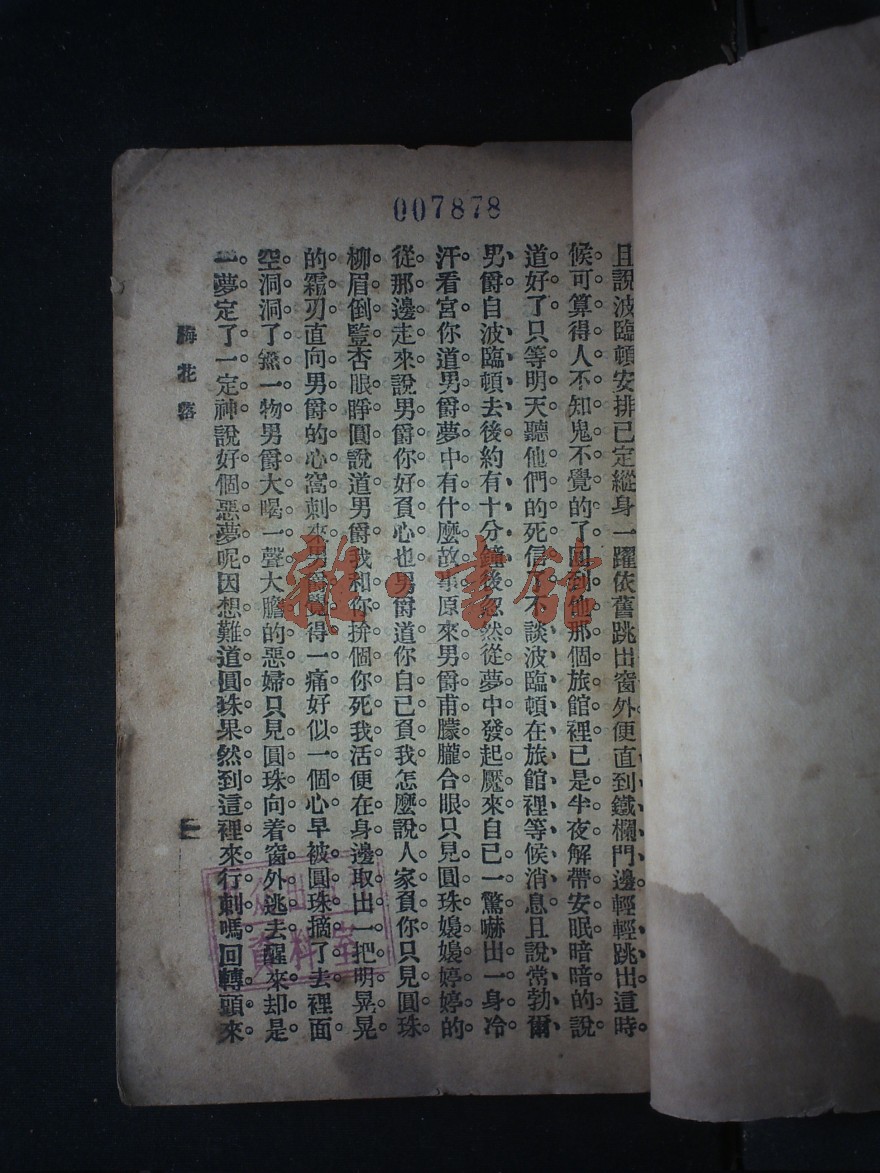 007878
且說波臨頓安排已定縱身一躍依舊跳出窗外便直到鐵欄門邊輕輕跳出這時
候可算得人不知鬼不覺的了回到他那個旅館裡已是半夜解帶安眠暗暗的說
道好了只等明天聽他們的死信了不談波臨頓在旅館裡等候消息且說常勃爾
男爵自波臨頓去後約有十分鐘後忽然從夢中發起魘來自已一驚嚇出一身冷
汗看官你道男爵夢中有什麼故事原來男爵甫朦朧合眼只見圓珠嫚嫚婷婷的
從那邊走來說男爵你好負心也男爵道你自已負我怎麼說人家負你只見圓珠
柳眉倒豎杏眼睜圓說道男爵我和你拚個你死我活便在身邊取出一把明晃晃
的霜刃直向男爵的心窩刺來男爵覺得一痛好似一個心早被圓珠摘了去裡面
空洞洞了無一物男爵大喝一聲大膽的惡婦只見圓珠向着窗外逃去醒來却是
一夢定了一定神說好個惡夢呢因想難道圓珠果然到這裡來行刺嗎回轉頭來
梅花落
資料室
雜·書館